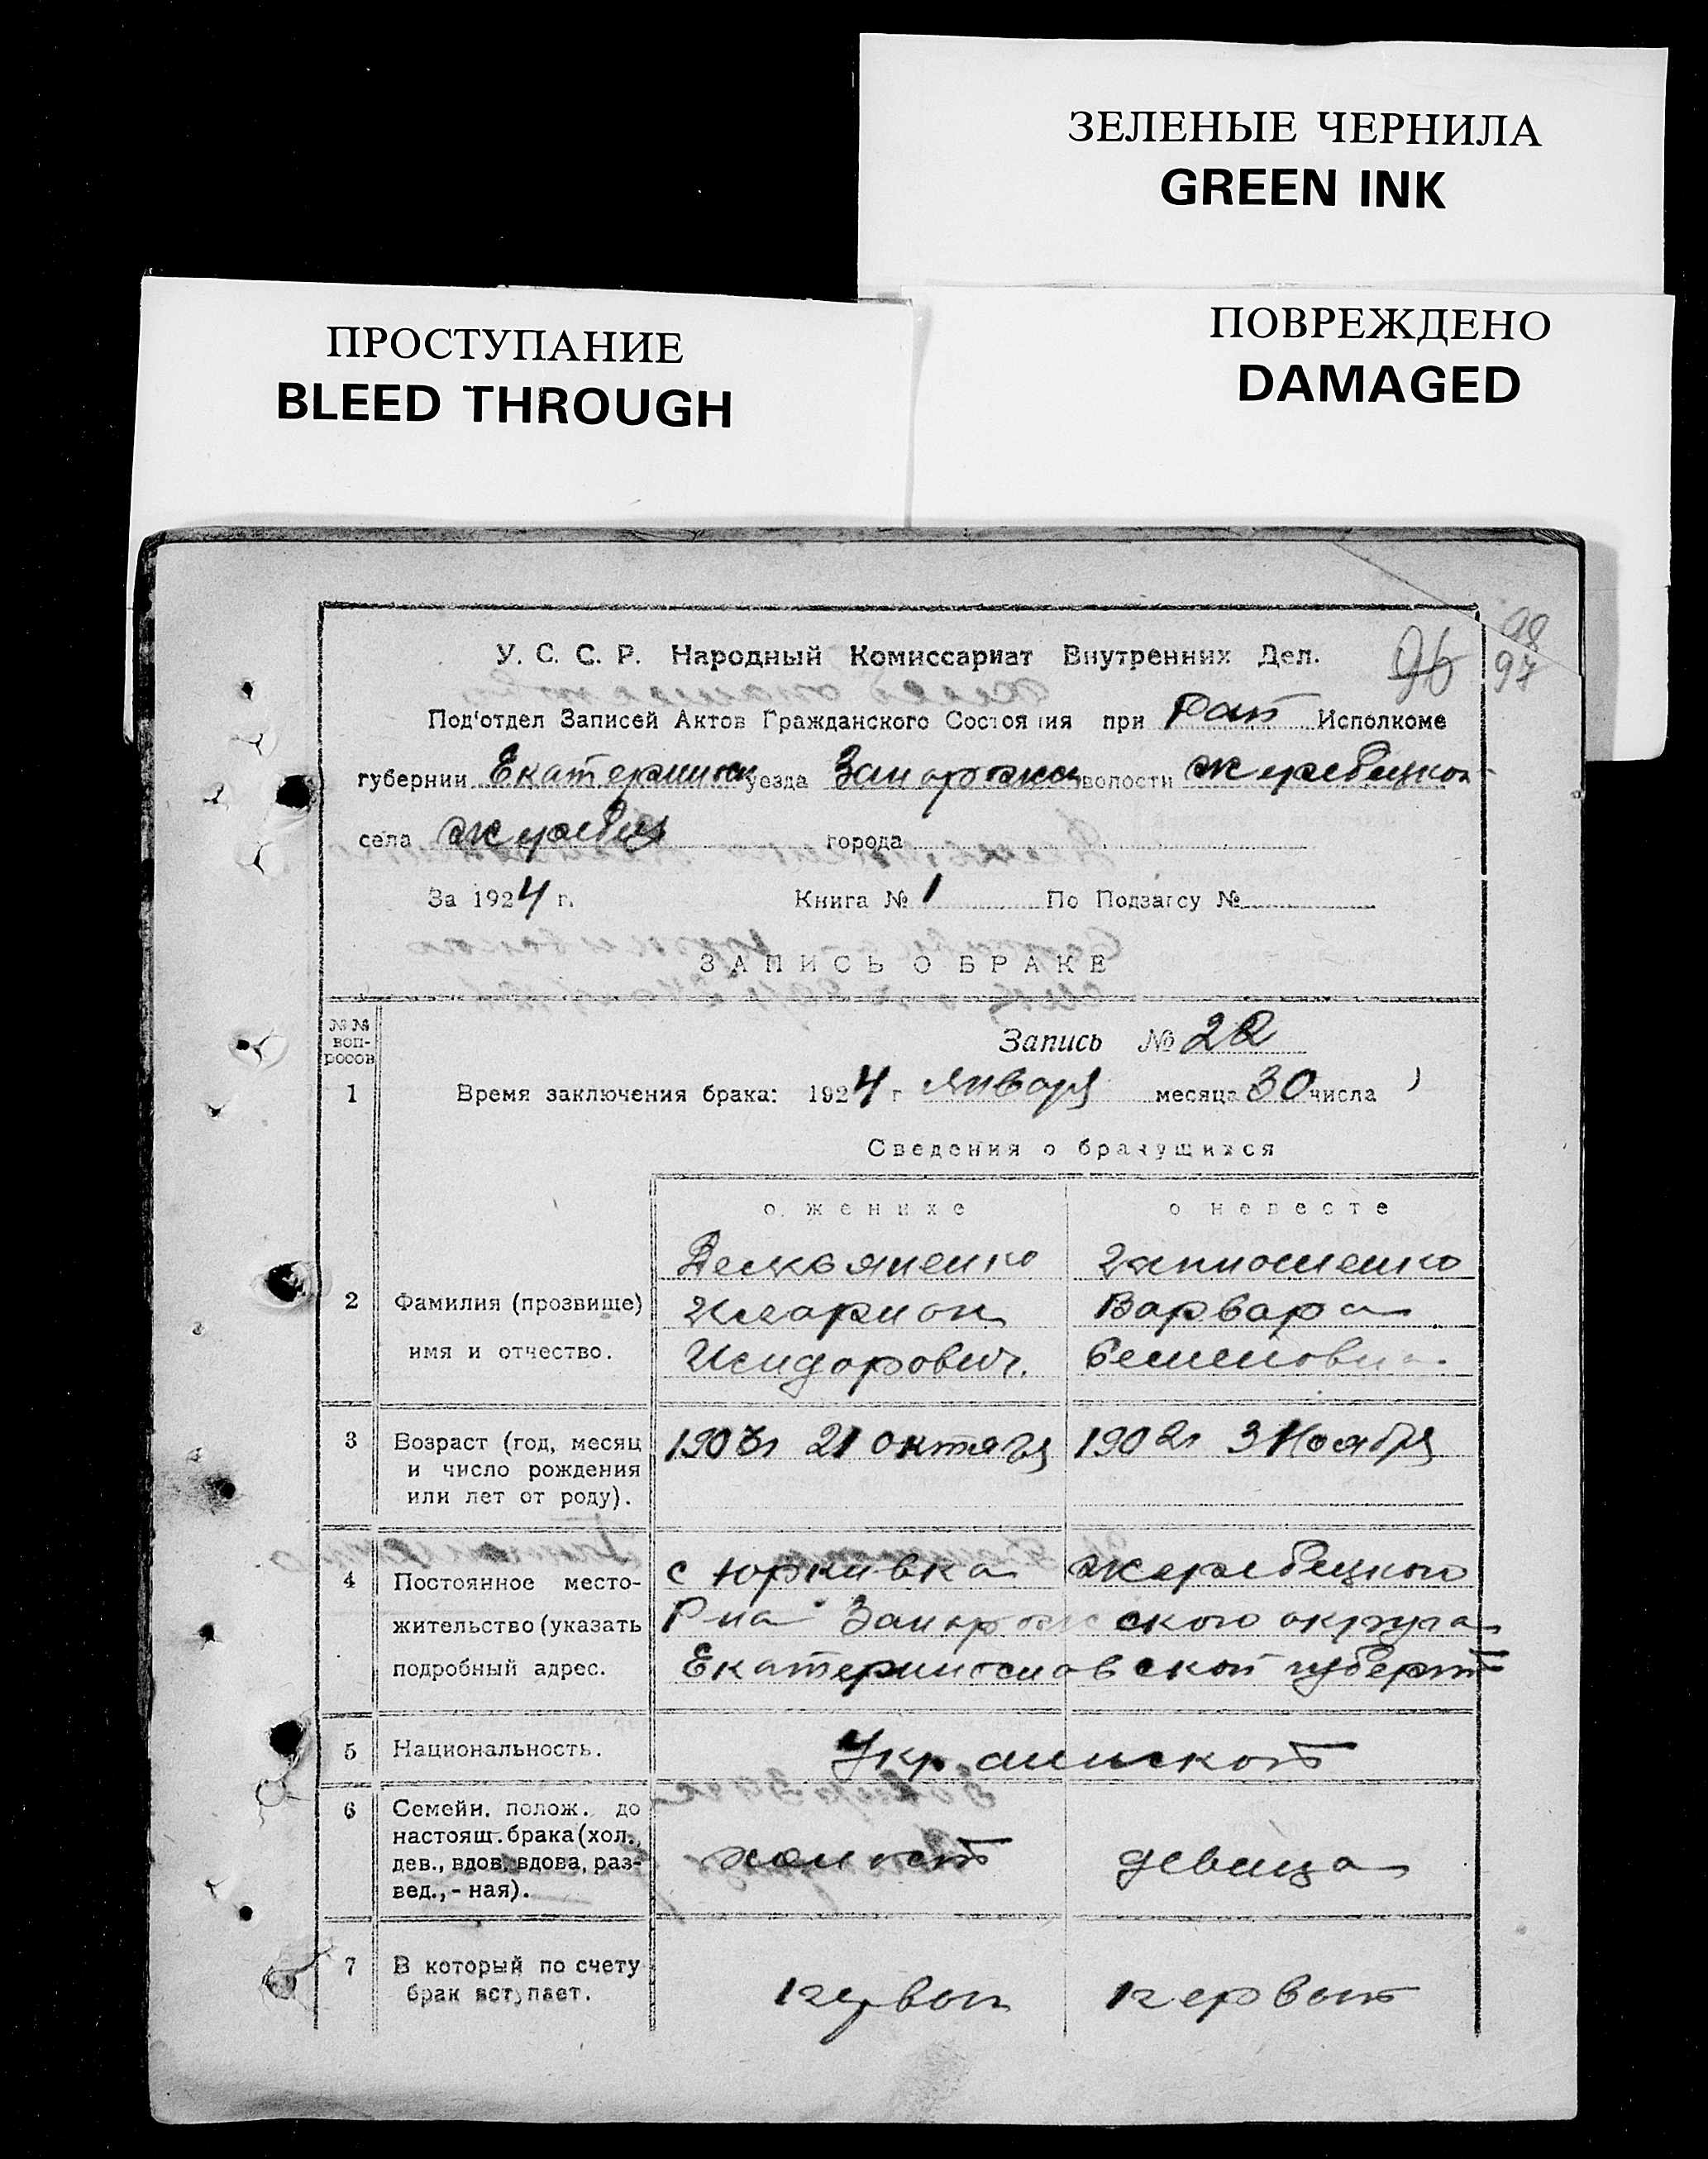 ЗЕЛЕНЫЕ ЧЕРНИЛА
GREEN INK
ПРОСТУПАНИЕ
BLEED THROUGH
ПОВРЕЖДЕНО
DAMAGED
98
96 97
У. С. С. Р. Народный Комиссариат Внутренних Дел.
Под'отдел Записей Актов Гражданского Состояния при Рай Исполкоме
губернии Екатеринос уезда Запорожск волости Жеребецкой
села Жеребец города
За 1924 г. Книга № 1 По Подзагсу №
ЗАПИСЬ О БРАКЕ
№№ вопросов
Запись № 22
1 Время заключения брака: 1924 г Января месяца 30 числа
Сведения о брачущихся
о женихе о невесте
Демьяненко
Варвара
2 Фамилия (прозвище) Иларион
имя и отчество. Исидорович. Семеновна.
3 Возраст (год, месяц 1903г 21 октября 1902г 3 Ноября
и число рождения
или лет от роду).
4 Постоянное место- с Юркивка Жеребецкого
жительство (указать Р-на Запорожского округа
подробный адрес. Екатеринославской губерни
5 Национальность. Украинской
6 Семейн. полож. до
настоящ. брака (хол.,
дев., вдов, вдова, раз- холост девица
вед., - ная).
7 В который по счету первый первый
брак вступает.